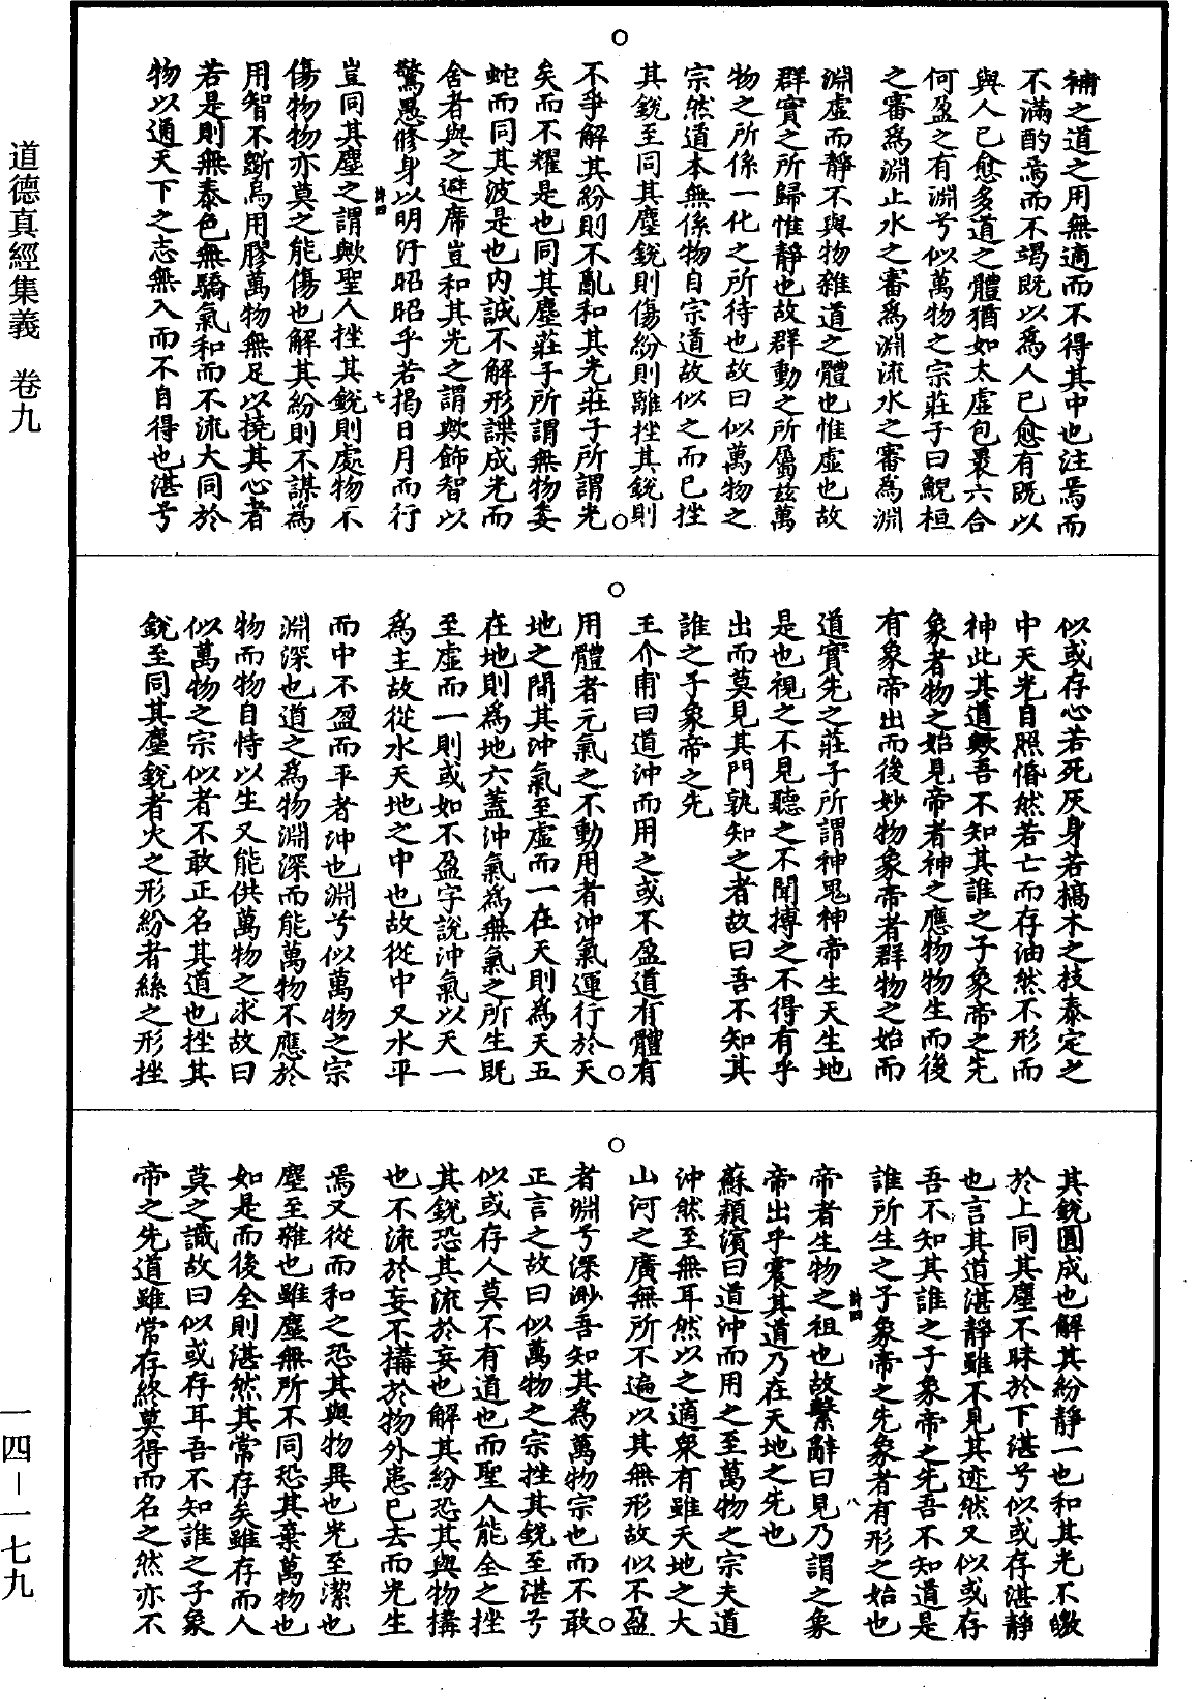 道德真經集義　卷九
補之道之用無適而不得其中也注焉而
不滿酌焉而不竭既以為人已愈有既以
與人已愈多道之體猶如太虛包褁六合
何盈之有淵兮似萬物之宗莊子曰鯢桓
之審為淵止水之審為淵流水之審為淵
淵虛而靜不與物雜道之體也惟虛也故
群實之所歸惟靜也故群動之所屬茲萬
物之所係一化之所待也故曰似萬物之
宗然道本無係物自宗道故似之而已挫
其銳至同其塵銳則傷紛則離挫其銳則
不爭解其紛則不亂和其光莊子所謂光
矣而不耀是也同其塵莊子所謂無物委
蛇而同其波是也內誠不解形諜成光而
舍者與之避席豈和其光之謂歟飾智以
驚愚修身以明汙昭昭乎若揭日月而行
詩四　七
豈同其塵之謂歟聖人挫其銳則處物不
傷物物亦莫之能傷也解其紛則不謀烏
用智不斲烏用膠萬物無足以撓其心者
若是則無泰色無驕氣和而不流大同於
物以通天下之志無入而不自得也湛兮
似或存心若死灰身若槁木之枝泰定之
中天光自照惛然若亡而存油然不形而
神此其道歟吾不知其誰之子象帝之先
象者物之始見帝者神之應物物生而後
有象帝出而後妙物象帝者群物之始而
道實先之莊子所謂神鬼神帝生天生地
是也視之不見聽之不聞搏之不得有乎
出而莫見其門孰知之者故曰吾不知其
誰之子象帝之先
王介甫曰道沖而用之或不盈道有體有
用體者元氣之不動用者沖氣運行於天
地之間其沖氣至虛而一在天則為天五
在地則為地六蓋沖氣為無氣之所生既
至虛而一則或如不盈字說沖氣以天一
為主故從水天地之中也故從中又水平
而中不盈而平者沖也淵兮似萬物之宗
淵深也道之為物淵深而能萬物不應於
物而物自恃以生又能供萬物之求故曰
似萬物之宗似者不敢正名其道也挫其
銳至同其塵銳者火之形紛者絲之形挫
其銳圓成也解其紛靜一也和其光不皦
於上同其塵不昧於下湛兮似或存湛靜
也言其道湛靜雖不見其迹然又似或存
吾不知其誰之子象帝之先吾不知道是
誰所生之子象帝之先象者有形之始也
詩四　八
帝者生物之祖也故繫辭曰見乃謂之象
帝出乎震其道乃在天地之先也
蘇穎濱曰道沖而用之至萬物之宗夫道
沖然至無耳然以之適衆有雖天地之大
山河之廣無所不遍以其無形故似不盈
者淵兮深渺吾知其為萬物宗也而不敢
正言之故曰似萬物之宗挫其銳至湛兮
似或存人莫不有道也而聖人能全之挫
其銳恐其流於妄也解其紛恐其與物搆
也不流於妄不搆於物外患已去而光生
焉又從而和之恐其與物異也光至潔也
塵至雜也雖塵無所不同恐其棄萬物也
如是而後全則湛然其常存矣雖存而人
莫之識故曰似或存耳吾不知誰之子象
帝之先道雖常存終莫得而名之然亦不
一四－一七九